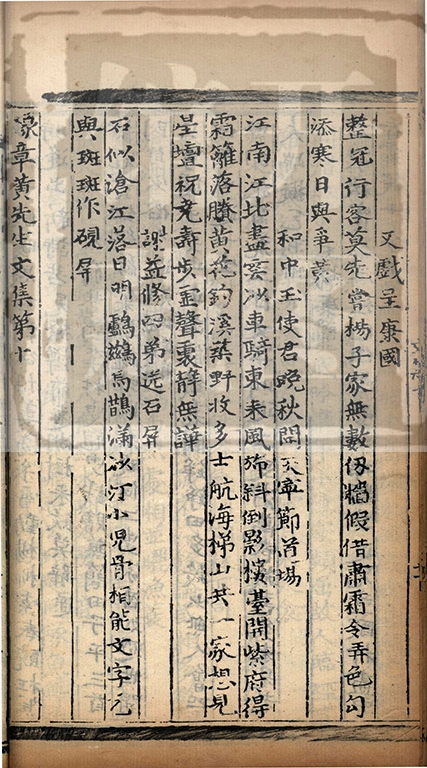 又戲呈康國
整冠行客莫先嘗楊子家無數仞牆假借肅霜令弄色勾
添寒日與爭黃
和中玉使君晚秋開天寧節道場
江南江北盡雲沙車騎東來風旆斜倒影樓臺開紫府得
霜籬落賸黃花釣溪築野收多士航海梯山共一家想見
星壇祝堯壽步虛聲裏靜無譁
謝益修四弟送石屏
石似滄江落日明鸕鶿烏鵲滿沙汀小兒骨相能文字元
與斑斑作硯屏
豫章黃先生文集第十